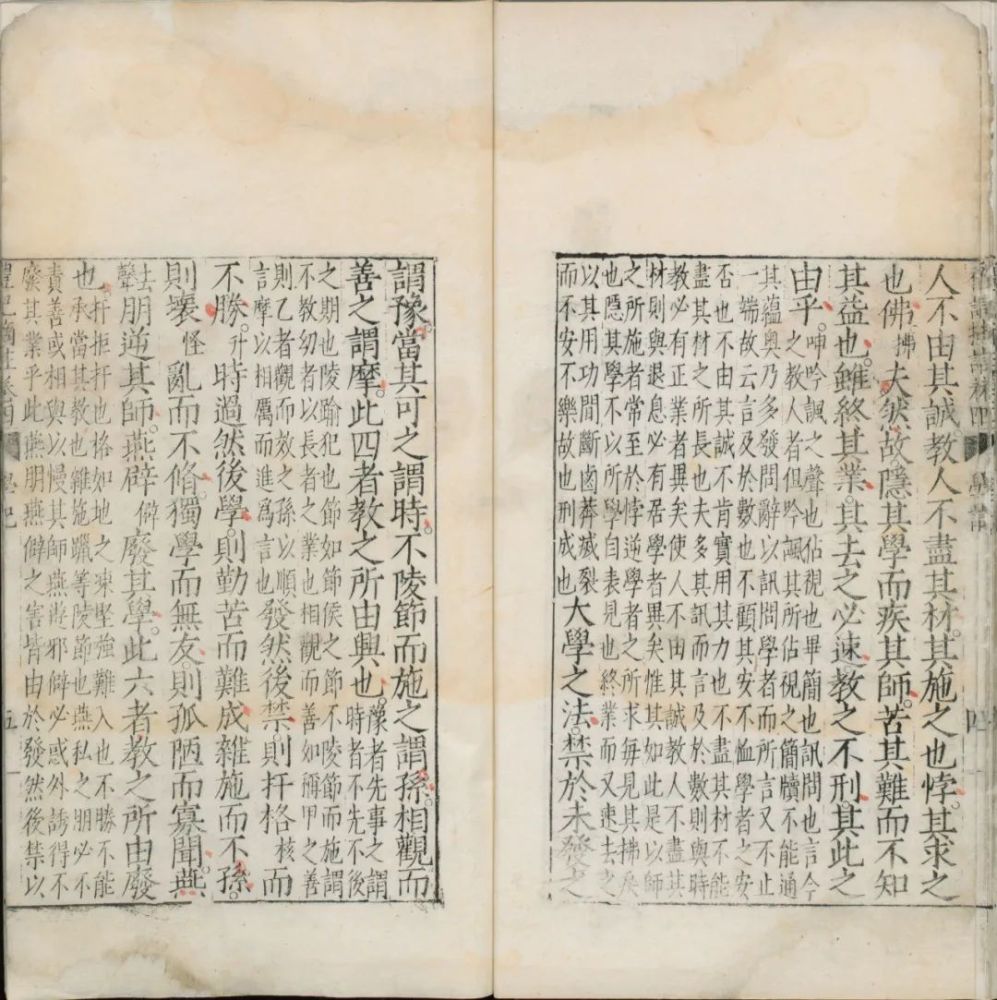 人不由其誠教人不盡其材其施之也悖其求之
也佛拂夫然故隱其學而疾其師苦其難而不知
其益也雖終其業其去之必速教之不刑其此之
由乎呻吟諷之聲也佔視也畢簡也訊問也言今
之教人者但吟諷其所佔視之簡牘不能通
其蘊奧乃多發問辭以訊問學者而所言又不止
一端故云言及於數也不顧其安不恤學者之安
否也不由其誠不肯實用其力也不盡其材不能
盡其材之所長也夫多其訊而言及於數則與時
教必有正業者異矣使人不由其誠教人不盡其
材則與退息必有居學者異矣惟其如此是以師
之所施者常至於悖逆學者之所求每見其拂戾
也隱其學不以所學自表見也終業而又速去之
以其用功間斷鹵莽滅裂
而不安不樂故也刑成也
大學之法禁於未發之
謂豫當其可之謂時不陵節而施之謂孫相觀而
善之謂摩此四者教之所由興也豫者先事之謂
時者不先不後
之期也陵踰犯也節如節侯之節不陵節而施謂
不教幼者以長者之業也相觀而善如稱甲之善
則乙者觀而效之孫以順
言摩以相厲而進爲言也
發然後禁則扞格核而
不勝升時過然後學則勤苦而難成雜施而不孫
則壞怪亂而不脩獨學而無友則孤陋而寡聞燕
朋逆其師燕辟僻廢其學此六者教之所由廢
去聲
也扞拒扞也格如地之凍堅強難入也不勝不能
承當其教也雜施躐等陵節也燕私之朋必不
責善或相與以慢其師燕遊邪僻必惑外誘得不
廢其業乎此燕朋燕僻之害皆由於發然後禁以
學記
五